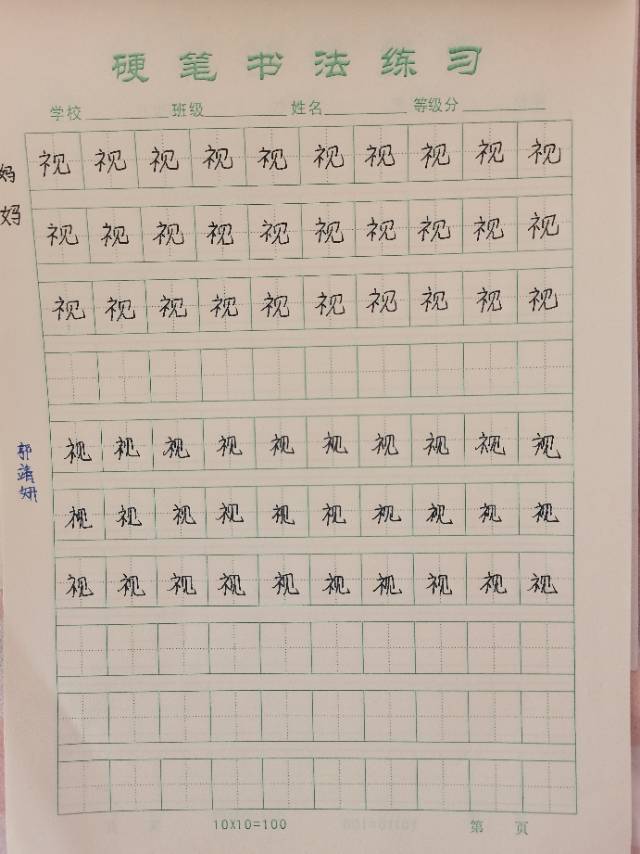 硬笔书法练习
学校 班级 姓名 等级分
视视视视视视视视视视
妈妈
视视视视视视视视视视
视视视视视视视视视视
郭靖妍
视视视视视视视视视视
视视视视视视视视视视
视视视视视视视视视视
10X10=100 第 页